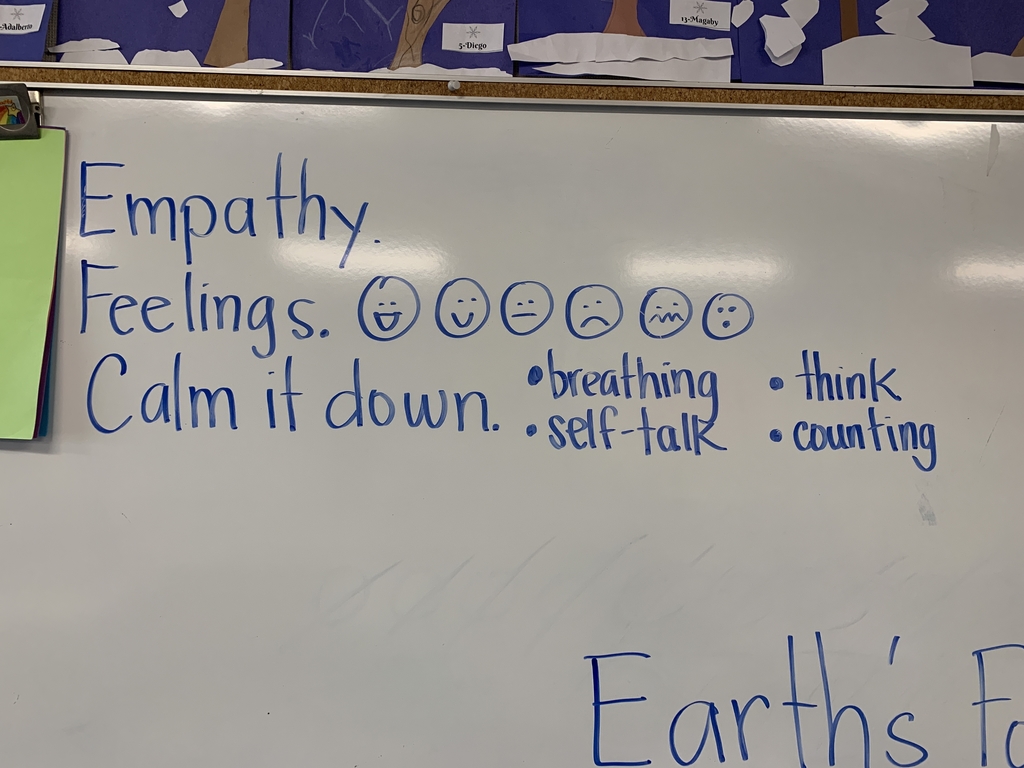 -Adalberto
5-Diego
13-Magaby
Empathy.
Feelings.
Calm it down.
•breathing
•self-talk
•think
•counting
Earth's